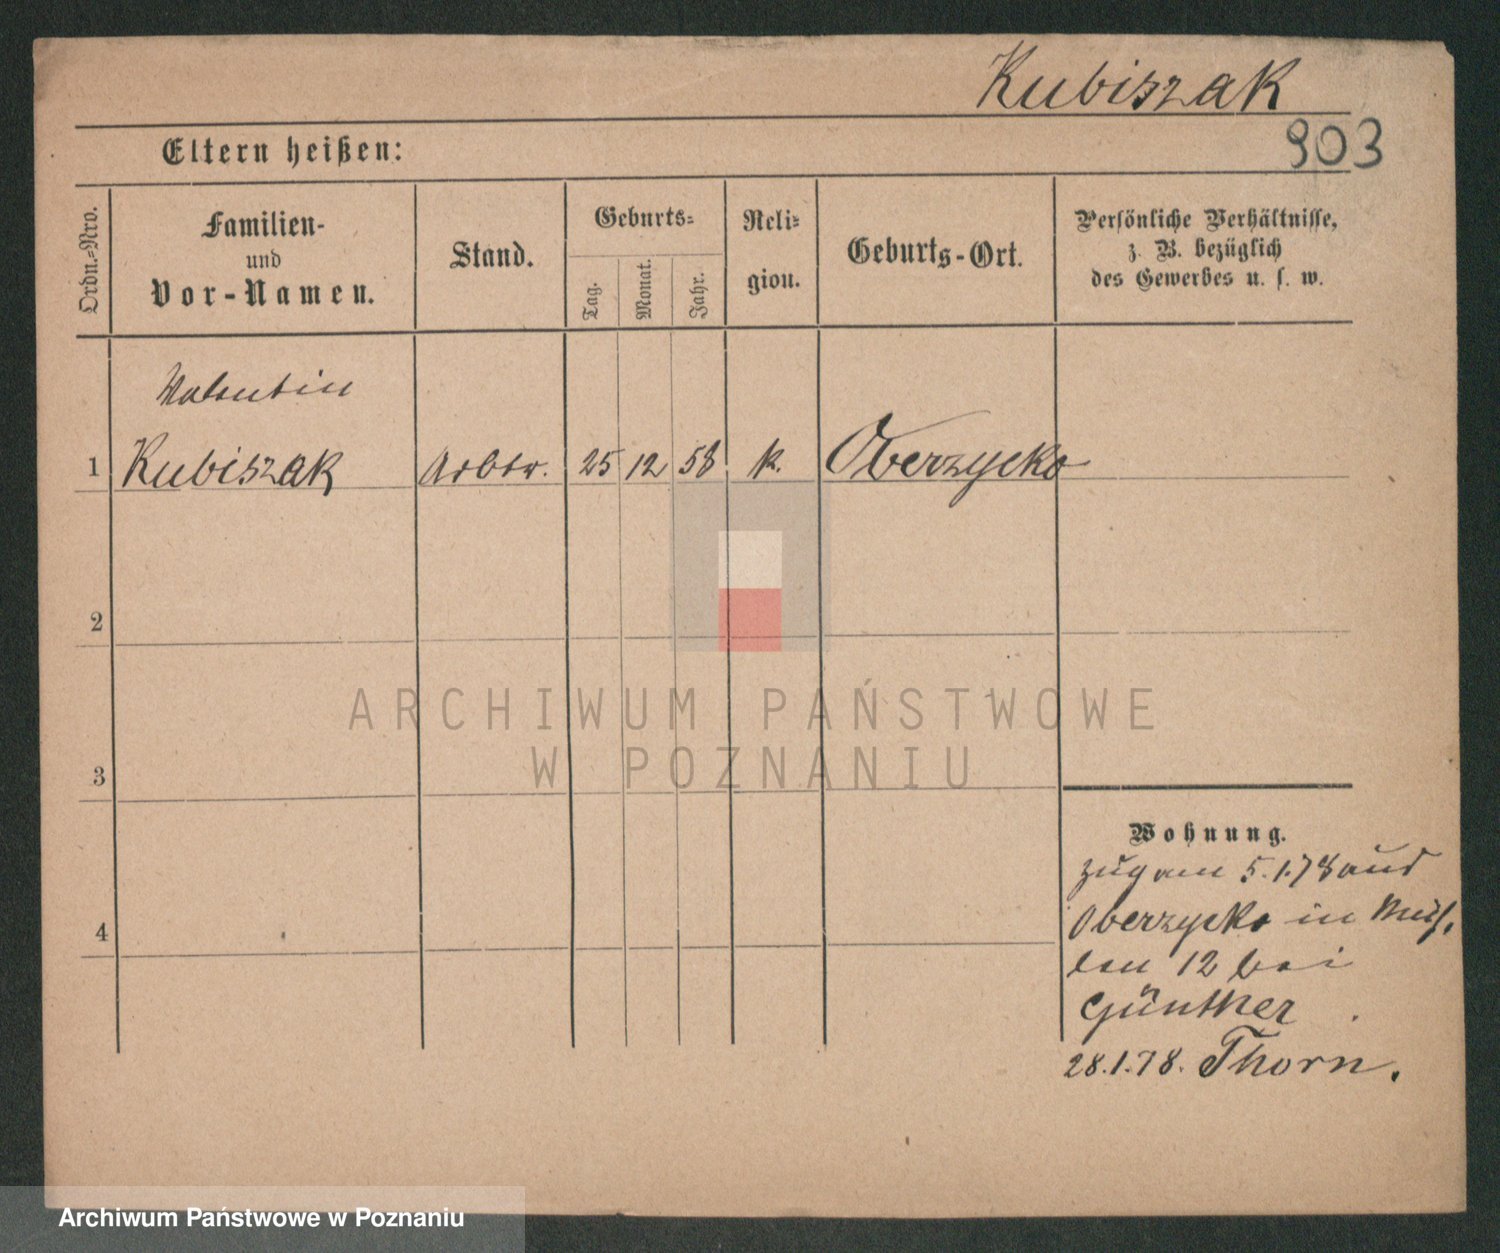 Kubiszak
903
Eltern heißen:
Ordn.=Nro.
Familien-
und
Vor-Namen.
Stand.
Geburts=
Tag.
Monat.
Jahr.
Reli=
gion.
Geburts-Ort.
Persönliche Verhältnisse,
z. B. bezüglich
des Gewerbes u. s. w.
Valentin
1 Kubiszak Arbtr. 25 12 58 k. Oberzycko
2
3
4
ARCHIWUM PAŃSTWOWE
W POZNANIU
Wohnung.
Zug am 5.1.78 aus
Oberzycko in
12 bei
Günther
28.1.78. Thorn.
Archiwum Państwowe w Poznaniu